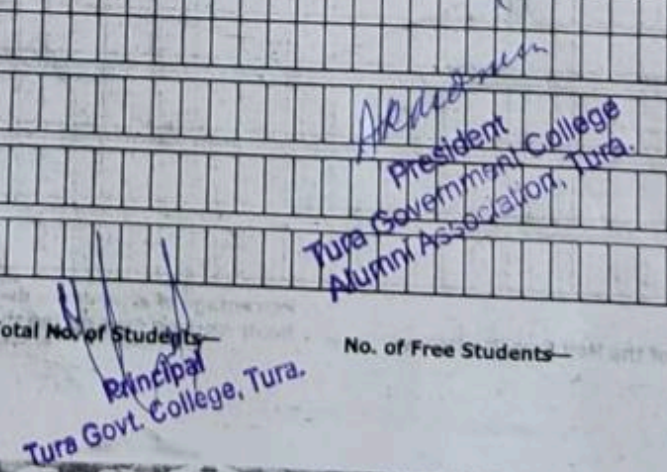 President
Tura Government College
Alumni Association, Tura.
Total No. of Students—
No. of Free Students—
Principal
Tura Govt. College, Tura.